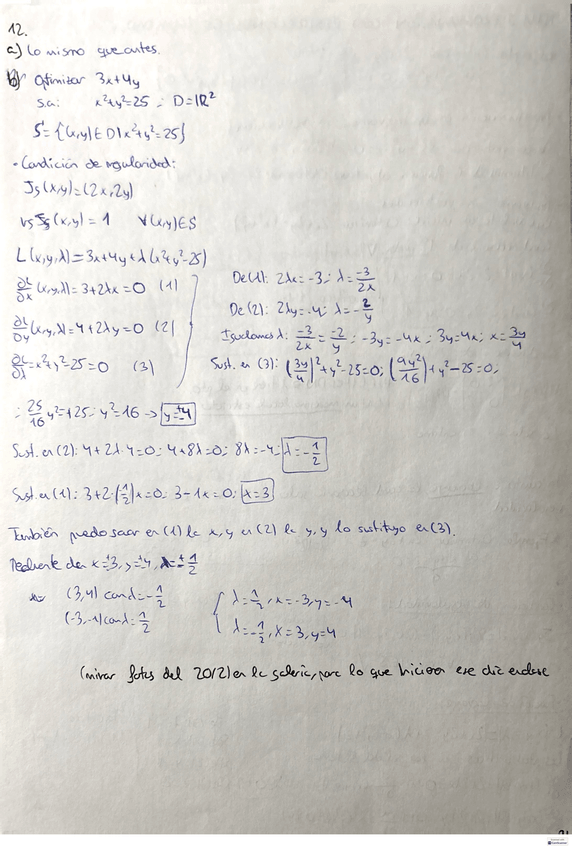 12.
a) Lo mismo que antes.
b) Optimizar 3x+4y
s.a: x²+y²=25 ; D=ℝ²
S={(x,y)∈D| x²+y²=25}
- Condición de regularidad:
Jg(x,y)=(2x,2y)
rg Jg(x,y)=1 ∀(x,y)∈S
L(x,y,λ)=3x+4y+λ(x²+y²-25)
∂L/∂x (x,y,λ)=3+2λx=0 (1)
∂L/∂y (x,y,λ)=4+2λy=0 (2)
∂L/∂λ=x²+y²-25=0 (3)
De (1): 2λx=-3; λ=-3/2x
De (2): 2λy=-4; λ=-2/y
Igualamos λ: -3/2x=-2/y; -3y=-4x; 3y=4x; x=3y/4
Sust. en (3): (3y/4)²+y²-25=0; (9y²/16)+y²-25=0;
; 25/16 y²=+25; y²=16 → y=±4
Sust. en (2): 4+2λ·4=0; 4+8λ=0; 8λ=-4; λ=-1/2
Sust. en (1): 3+2·(-1/2)x=0; 3-1x=0; x=3
También puedo sacar en (1) la x, y en (2) la y, y lo sustituyo en (3).
x=±3, y=±4, λ=±1/2
(3,4) con λ=-1/2
(-3,-4) con λ=1/2
{ λ=1/2, x=-3, y=-4
λ=-1/2, x=3, y=4
(mirar fotos del 20/2) en la galería, para lo que hicieron ese día en clase